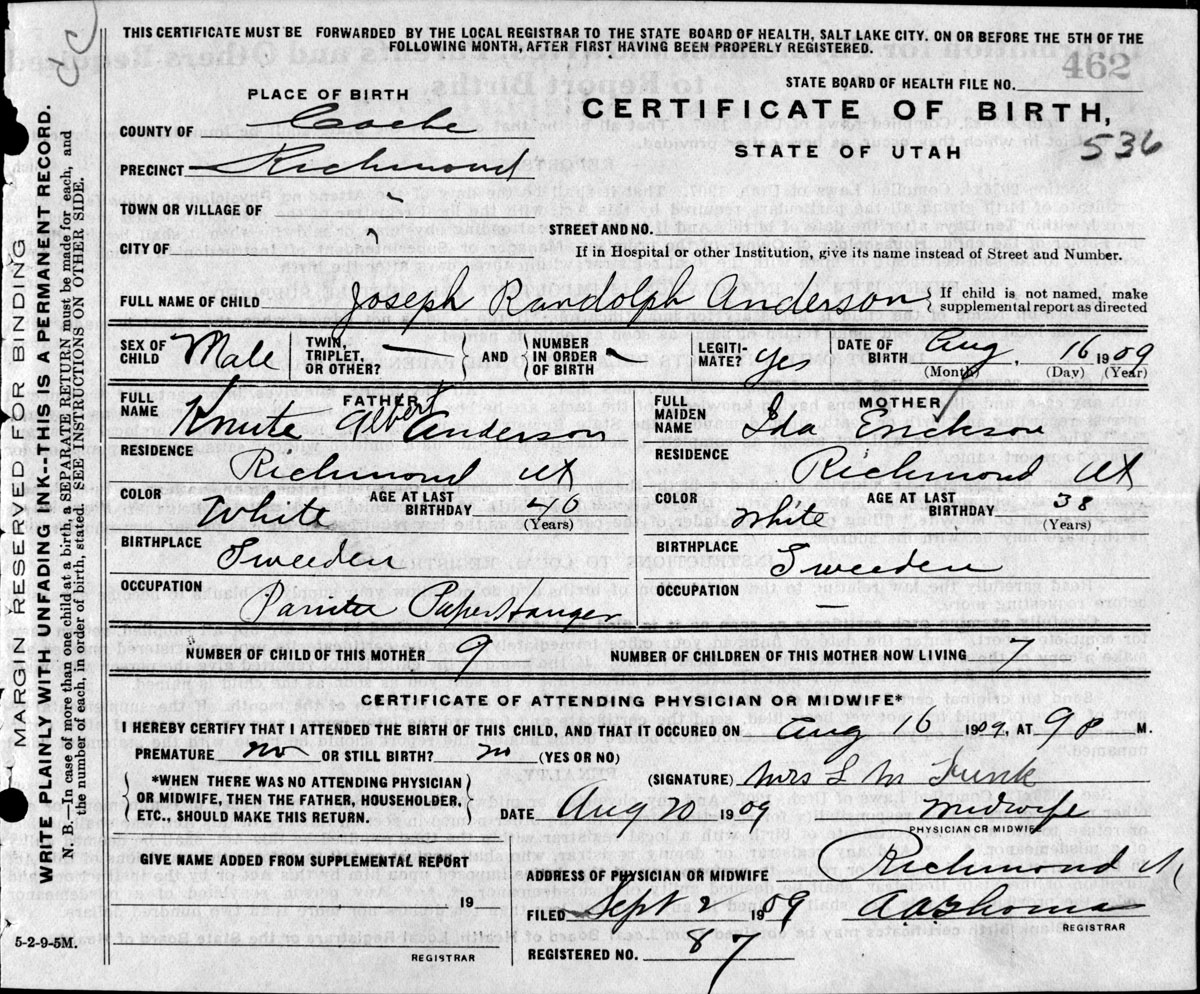 THIS CERTIFICATE MUST BE FORWARDED BY THE LOCAL REGISTRAR TO THE STATE BOARD OF HEALTH, SALT LAKE CITY, ON OR BEFORE THE 5TH OF THE
FOLLOWING MONTH, AFTER FIRST HAVING BEEN PROPERLY REGISTERED.
462
STATE BOARD OF HEALTH FILE NO.
PLACE OF BIRTH
CERTIFICATE OF BIRTH,
COUNTY OF Cache
STATE OF UTAH 536
PRECINCT Richmond
TOWN OR VILLAGE OF
STREET AND NO.
CITY OF
If in Hospital or other Institution, give its name instead of Street and Number.
FULL NAME OF CHILD Joseph Randolph Anderson { If child is not named, make supplemental report as directed
SEX OF CHILD Male TWIN, TRIPLET, OR OTHER? — { AND } NUMBER IN ORDER OF BIRTH — LEGITI-MATE? Yes DATE OF BIRTH Aug. 16 1909
(Month) (Day) (Year)
FATHER
FULL NAME Knute Albert Anderson
RESIDENCE Richmond Ut
COLOR White AGE AT LAST BIRTHDAY 40
(Years)
BIRTHPLACE Sweeden
OCCUPATION Painter Paper Hanger
MOTHER
FULL MAIDEN NAME Ida Erickson
RESIDENCE Richmond Ut
COLOR White AGE AT LAST BIRTHDAY 38
(Years)
BIRTHPLACE Sweeden
OCCUPATION —
NUMBER OF CHILD OF THIS MOTHER 9 NUMBER OF CHILDREN OF THIS MOTHER NOW LIVING 7
CERTIFICATE OF ATTENDING PHYSICIAN OR MIDWIFE*
I HEREBY CERTIFY THAT I ATTENDED THE BIRTH OF THIS CHILD, AND THAT IT OCCURED ON Aug 16 1909, AT 9 P M.
PREMATURE no OR STILL BIRTH? no (YES OR NO)
*WHEN THERE WAS NO ATTENDING PHYSICIAN
OR MIDWIFE, THEN THE FATHER, HOUSEHOLDER,
ETC., SHOULD MAKE THIS RETURN.
(SIGNATURE) Mrs L M Funk
DATE Aug 20 1909 Midwife
PHYSICIAN OR MIDWIFE
GIVE NAME ADDED FROM SUPPLEMENTAL REPORT
19
REGISTRAR
ADDRESS OF PHYSICIAN OR MIDWIFE Richmond Ut
FILED Sept 2 1909 A A Thomas
REGISTRAR
REGISTERED NO. 87
MARGIN RESERED FOR BINDING
WRITE PLAINLY WITH UNFADING INK--THIS IS A PERMANENT RECORD.
N. B.—In case of more than one child at a birth, a SEPARATE RETURN must be made for each, and
the number of each, in order of birth, stated. SEE INSTRUCTIONS ON OTHER SIDE.
5-2-9-5M.